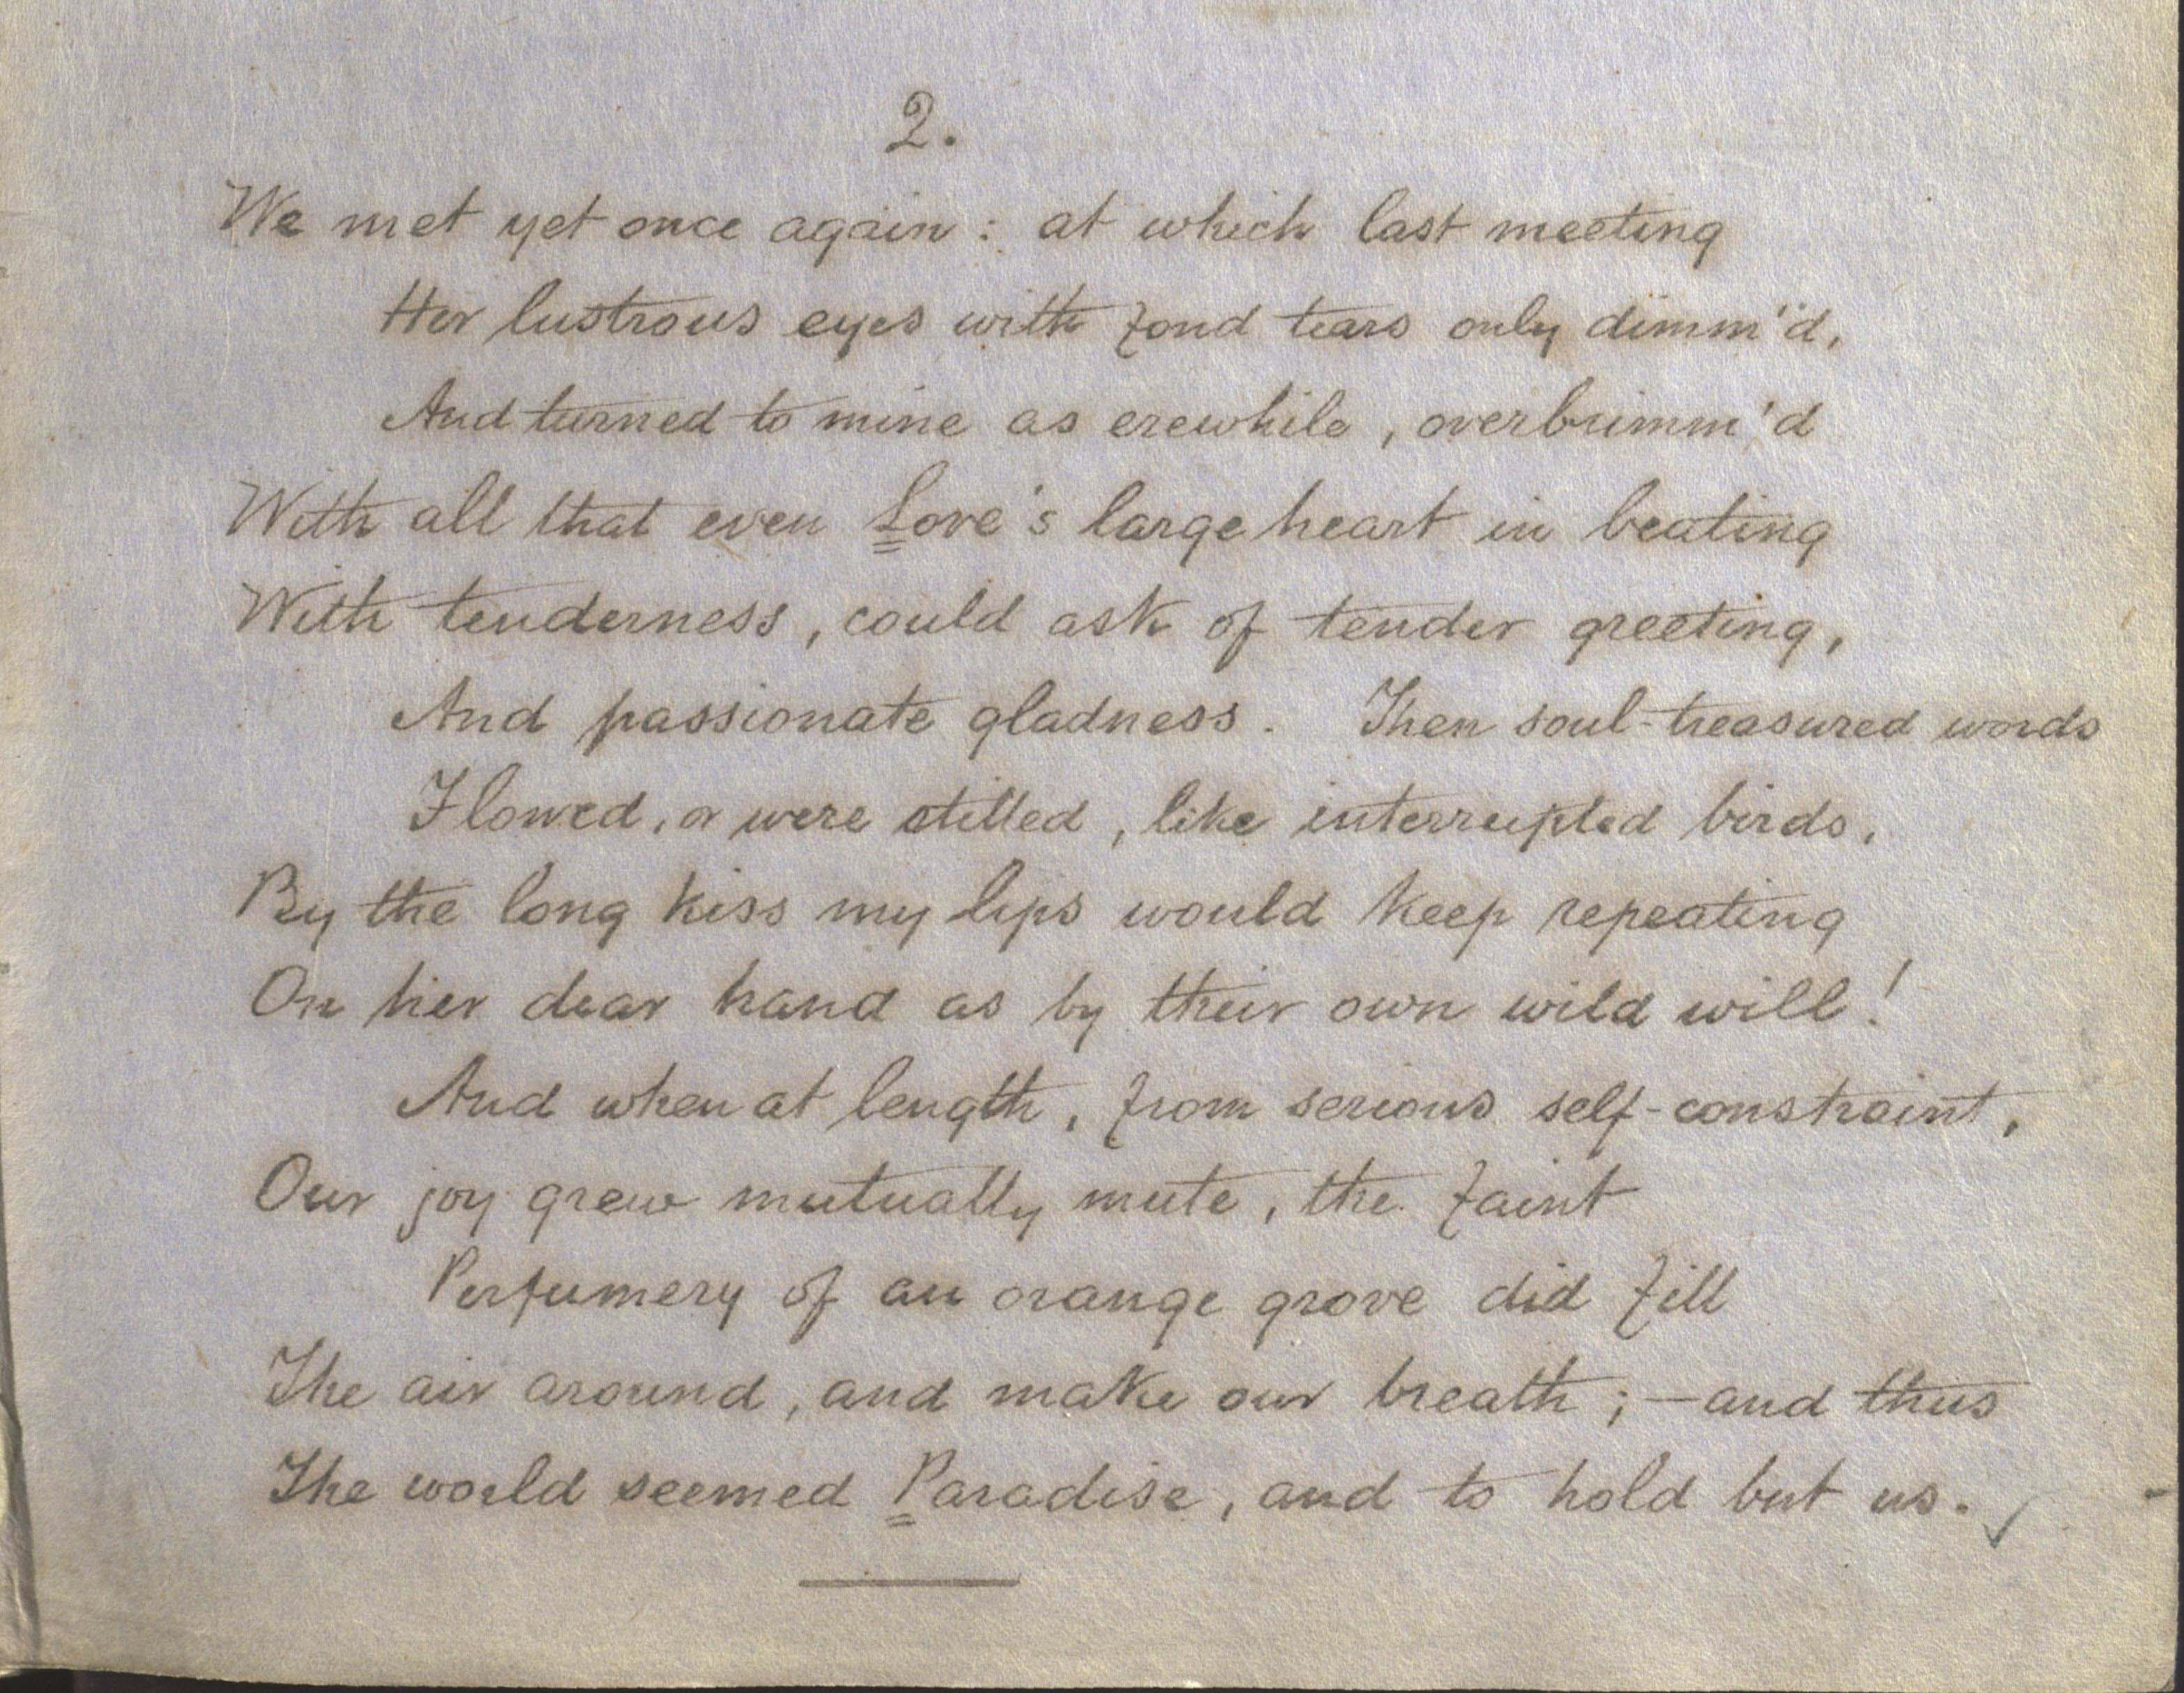 2.
We met yet once again: at which last meeting
Her lustrous eyes with fond tears only dimm'd,
And turned to mine as erewhile, overbrimm'd
With all that even Love's large heart in beating
With tenderness, could ask of tender greeting,
And passionate gladness. Then soul-treasured words
Flowed, or were stilled, like interrupted birds,
By the long kiss my lips would keep repeating
On her dear hand as by their own wild will!
And when at length, from serious self-constraint,
Our joy grew mutually mute, the faint
Perfumery of an orange grove did fill
The air around, and make our breath;—and thus
The world seemed Paradise, and to hold but us.